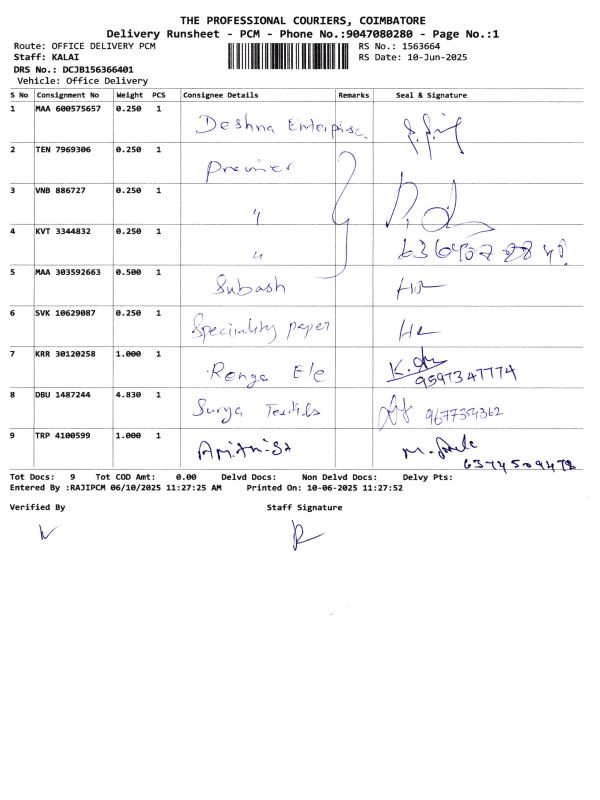 THE PROFESSIONAL COURIERS, COIMBATORE
Delivery Runsheet - PCM - Phone No.:9047080280 - Page No.:1
Route: OFFICE DELIVERY PCM
RS No.: 1563664
Staff: KALAI
RS Date: 10-Jun-2025
DRS No.: DCJB156366401
Vehicle: Office Delivery
S No Consignment No Weight PCS Consignee Details Remarks Seal & Signature
1 MAA 600575657 0.250 1 Deshna Enterprise
2 TEN 7969306 0.250 1 Premier
3 VNB 886727 0.250 1 "
4 KVT 3344832 0.250 1 "
5 MAA 303592663 0.500 1 Subash
6 SVK 10629087 0.250 1 Speciality paper
7 KRR 30120258 1.000 1 Renga Ele 9597347774
8 DBU 1487244 4.830 1 Surya Textils 9677354362
9 TRP 4100599 1.000 1 6374509478
Tot Docs: 9 Tot COD Amt: 0.00 Delvd Docs: Non Delvd Docs: Delvy Pts:
Entered By :RAJIPCM 06/10/2025 11:27:25 AM Printed On: 10-06-2025 11:27:52
Verified By Staff Signature